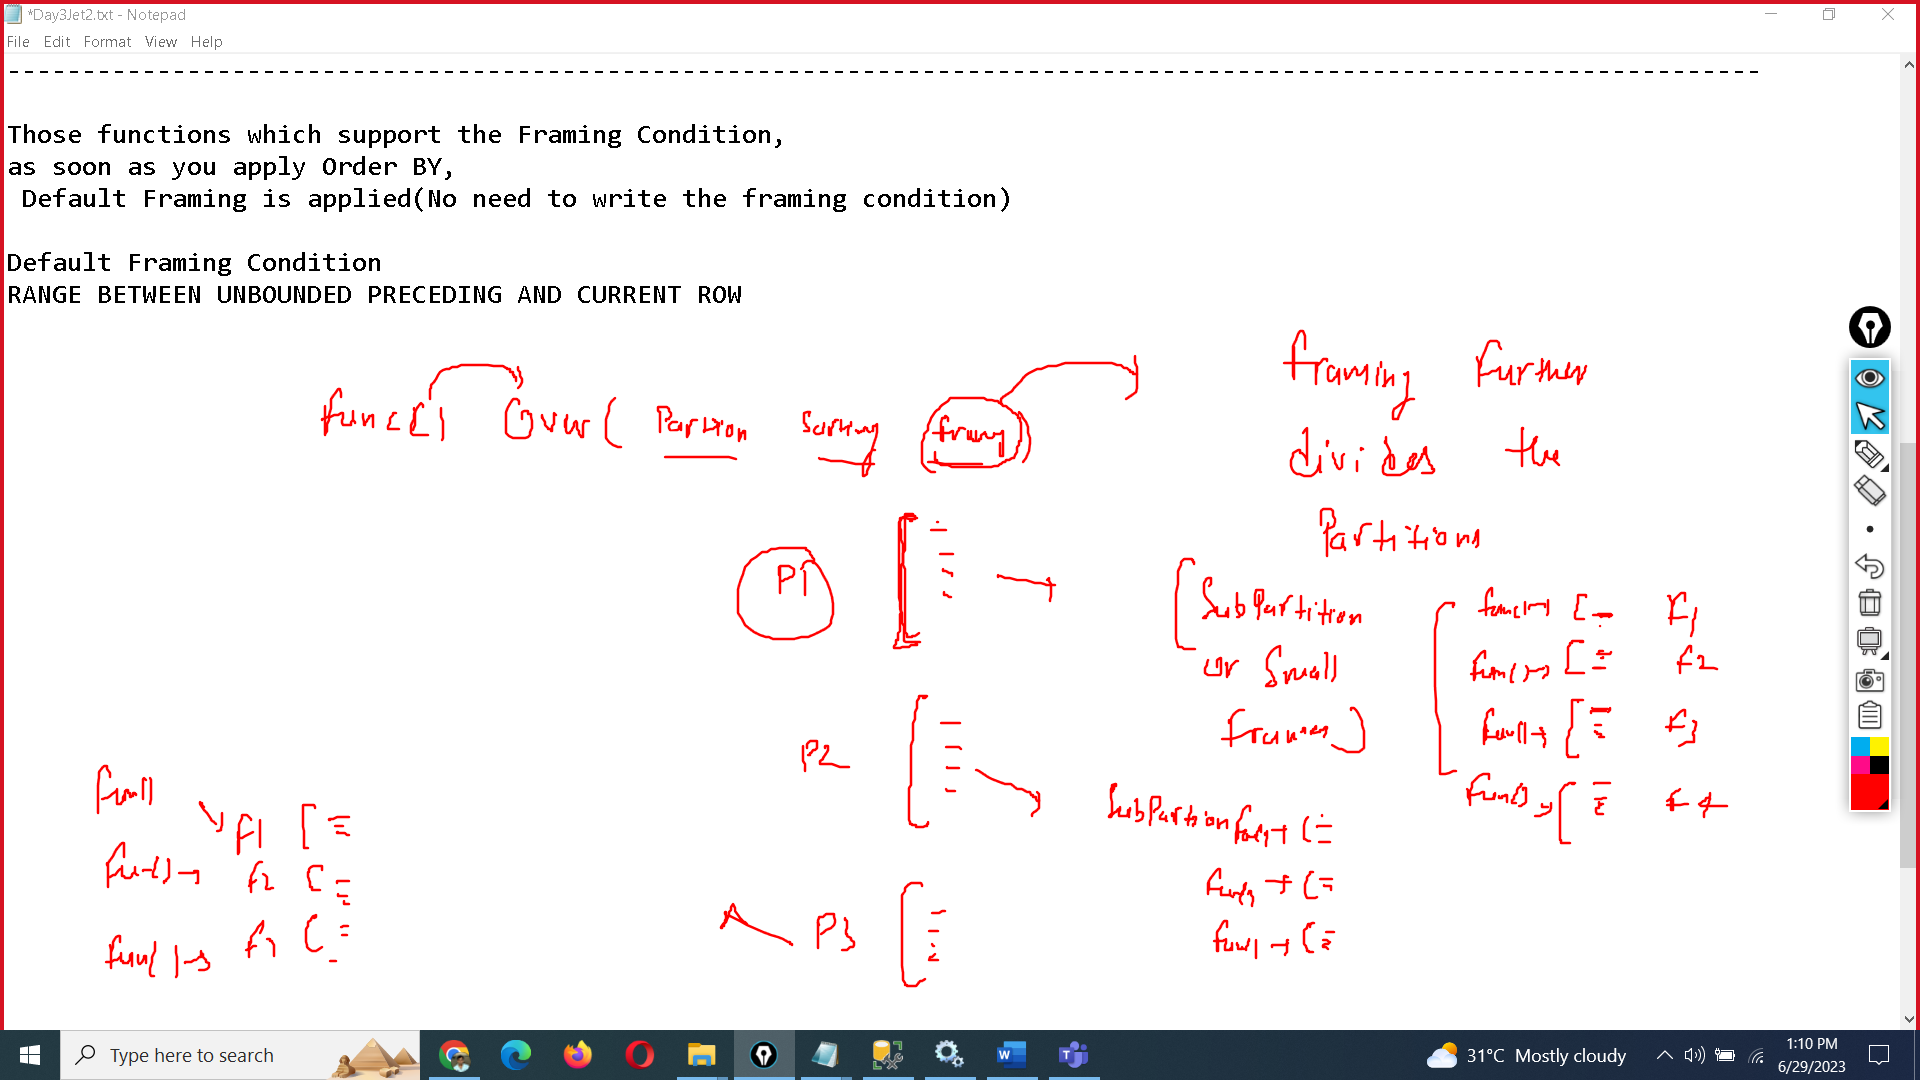 *Day3Jet2.txt - Notepad
File Edit Format View Help
--------------------------------------------------------------------------------------------------------------------
Those functions which support the Framing Condition,
as soon as you apply Order BY,
Default Framing is applied(No need to write the framing condition)
Default Framing Condition
RANGE BETWEEN UNBOUNDED PRECEDING AND CURRENT ROW
func() Over( Partition Sorting framing )
framing further
divides the
Partitions
P1
[SubPartition
or Small
frames]
func() → [ F1
fun() → [ F2
fun() → [ F3
fun() → [ F4
P2
SubPartition
fun() → [
fun() → [
fun() → [
P3
fun()
F1 [
fun() → F2 [
fun() → F3 [
Type here to search
31°C Mostly cloudy
1:10 PM
6/29/2023